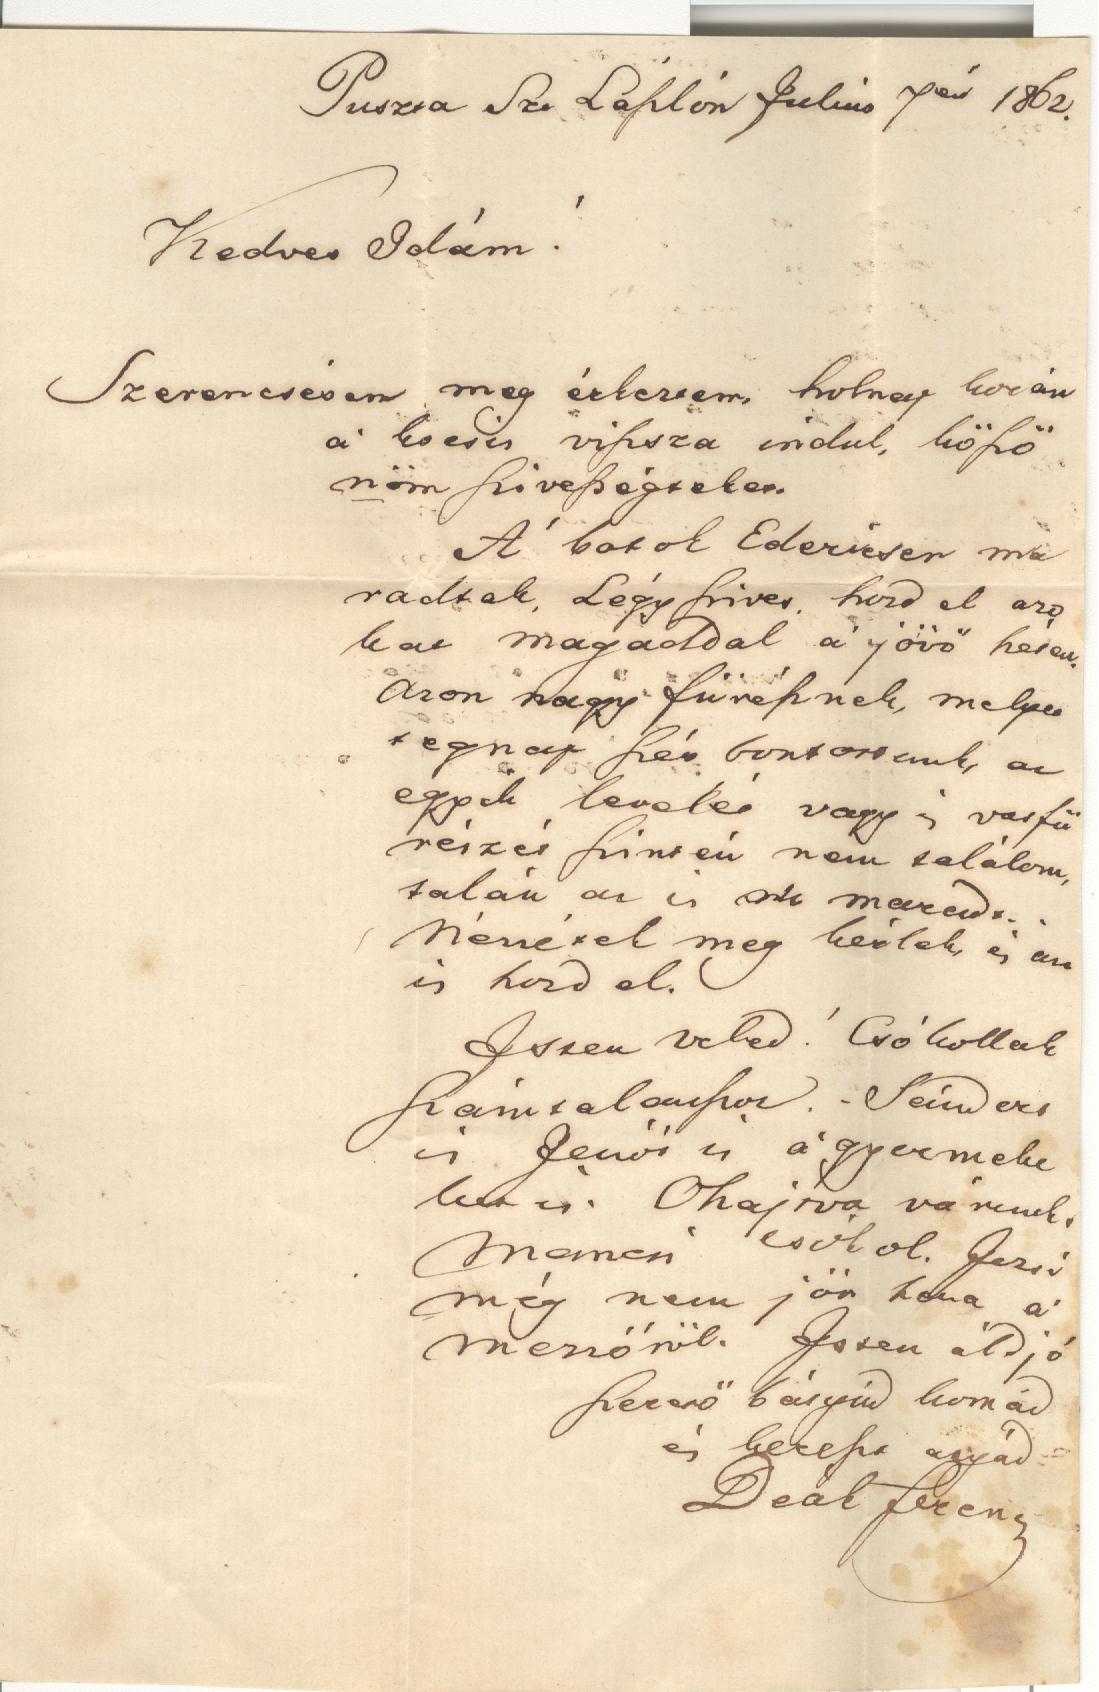 Puszta Szt Lászlón Julius 7én 1862.
Kedves Idám!
Szerencsésen meg érkeztem, holnap korán
a' kocsis vissza indul, köszö
nöm szivességteket.
A' botok Edericsen ma
radtak. Légy szives, hord el azo
kat magaddal a' jövő héten.
Azon nagy fürésznek, melyet
tegnap szét bontottunk, az
egyik levelét vagy is vasfü
részét szintén nem találom,
talán az is ott maradt.
Nézzétek meg kérlek, és azt
is hord el.
Isten veled! Csókollak
számtalanszor. - Sándort
is Jenőt is a' gyermeke
ket is. Ohajtva várunk.
Mancsi csókol. Jozsi
még nem jött haza a'
mezőről. Isten áldjó
szerető bátyád komád
és kereszt atyád
Deák Ferencz